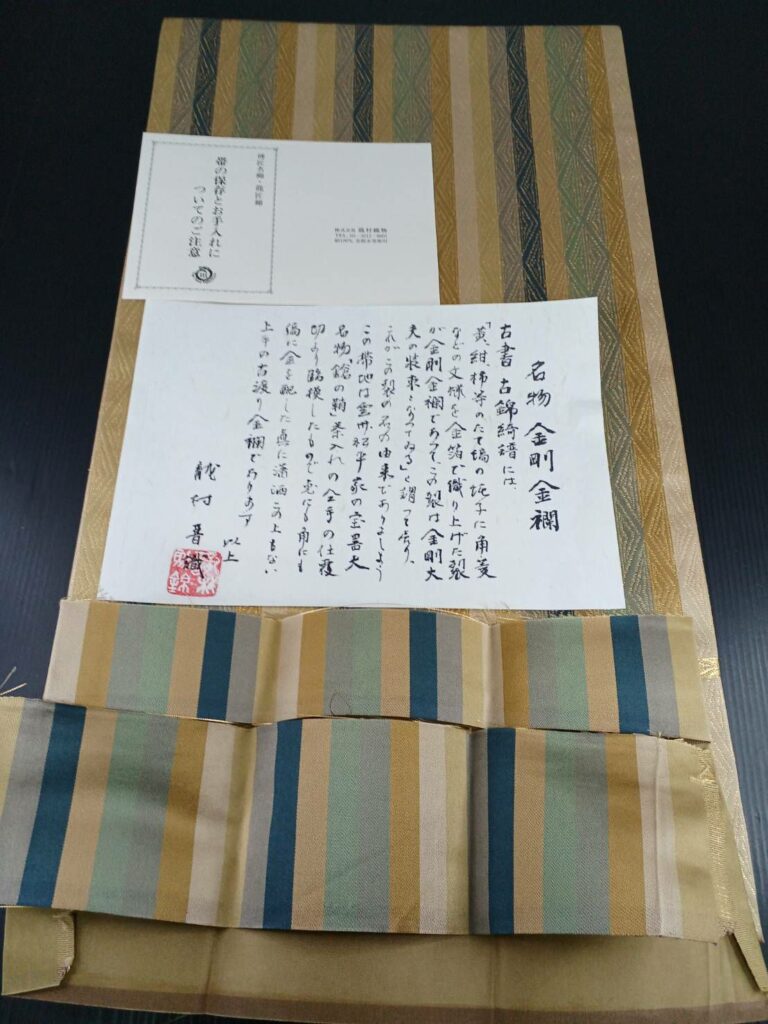 株式会社 龍村織物
帯の保存とお手入れに
ついてのご注意
名物 金剛金襴
古書 古錦綺譜には、
「黄、紺、柿等のたて縞の純子に角菱
などの文様を金箔で織り上げた裂
が金剛金襴であって、この裂は金剛太
夫の装束となってゐる」と謂って居り、
これがこの裂の名の由来でありましょう
この帯地は雲州松平家の宝器大
名物"槍の鞘"茶入れの仕覆
切より臨模したもので兎にも角にも
縞に金を配した真に瀟洒この上もない
上手の古渡り金襴であります
以上
龍村晋織